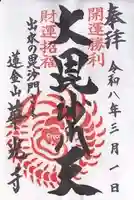 奉拝
令和八年三月一日
開運勝利
大毘沙門天
財運招福
出水の毘沙門さま
蓮金山華光寺